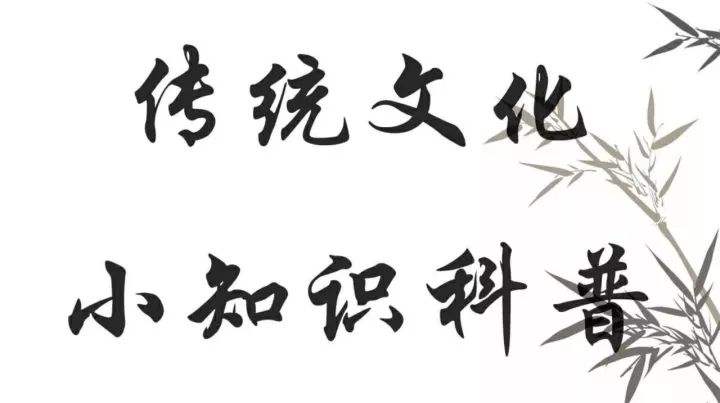 传统文化
小知识科普